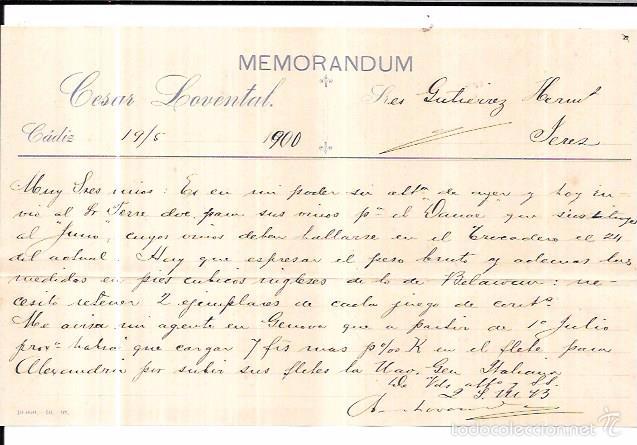 MEMORANDUM
Cesar Lovental.
Sres Gutierrez Herms
Cádiz 19/5 1900
Jerez
Muy Sres mios: Es en mi poder su attª de ayer y hoy en-
vio al Sr Terre doc. para sus vinos pª el "Danae" que
al "Juno", cuyos vinos deban hallarse en el Trocadero el 24
del actual. Hay que espresar el peso bruto y ademas las
medidas en pies cubicos ingleses de lo de : ne-
cesito retener 2 ejemplares de cada juego de contos.
Me avisa mi agente en Genova que a partir de 1º Julio
proxº habra que cargar 7 frs mas p%oo K en el flete para
Alexandria por subir sus fletes la Nav. Gen Italiana
De Vds attº y S.S.
Q. S. M. B.
todocoleccion